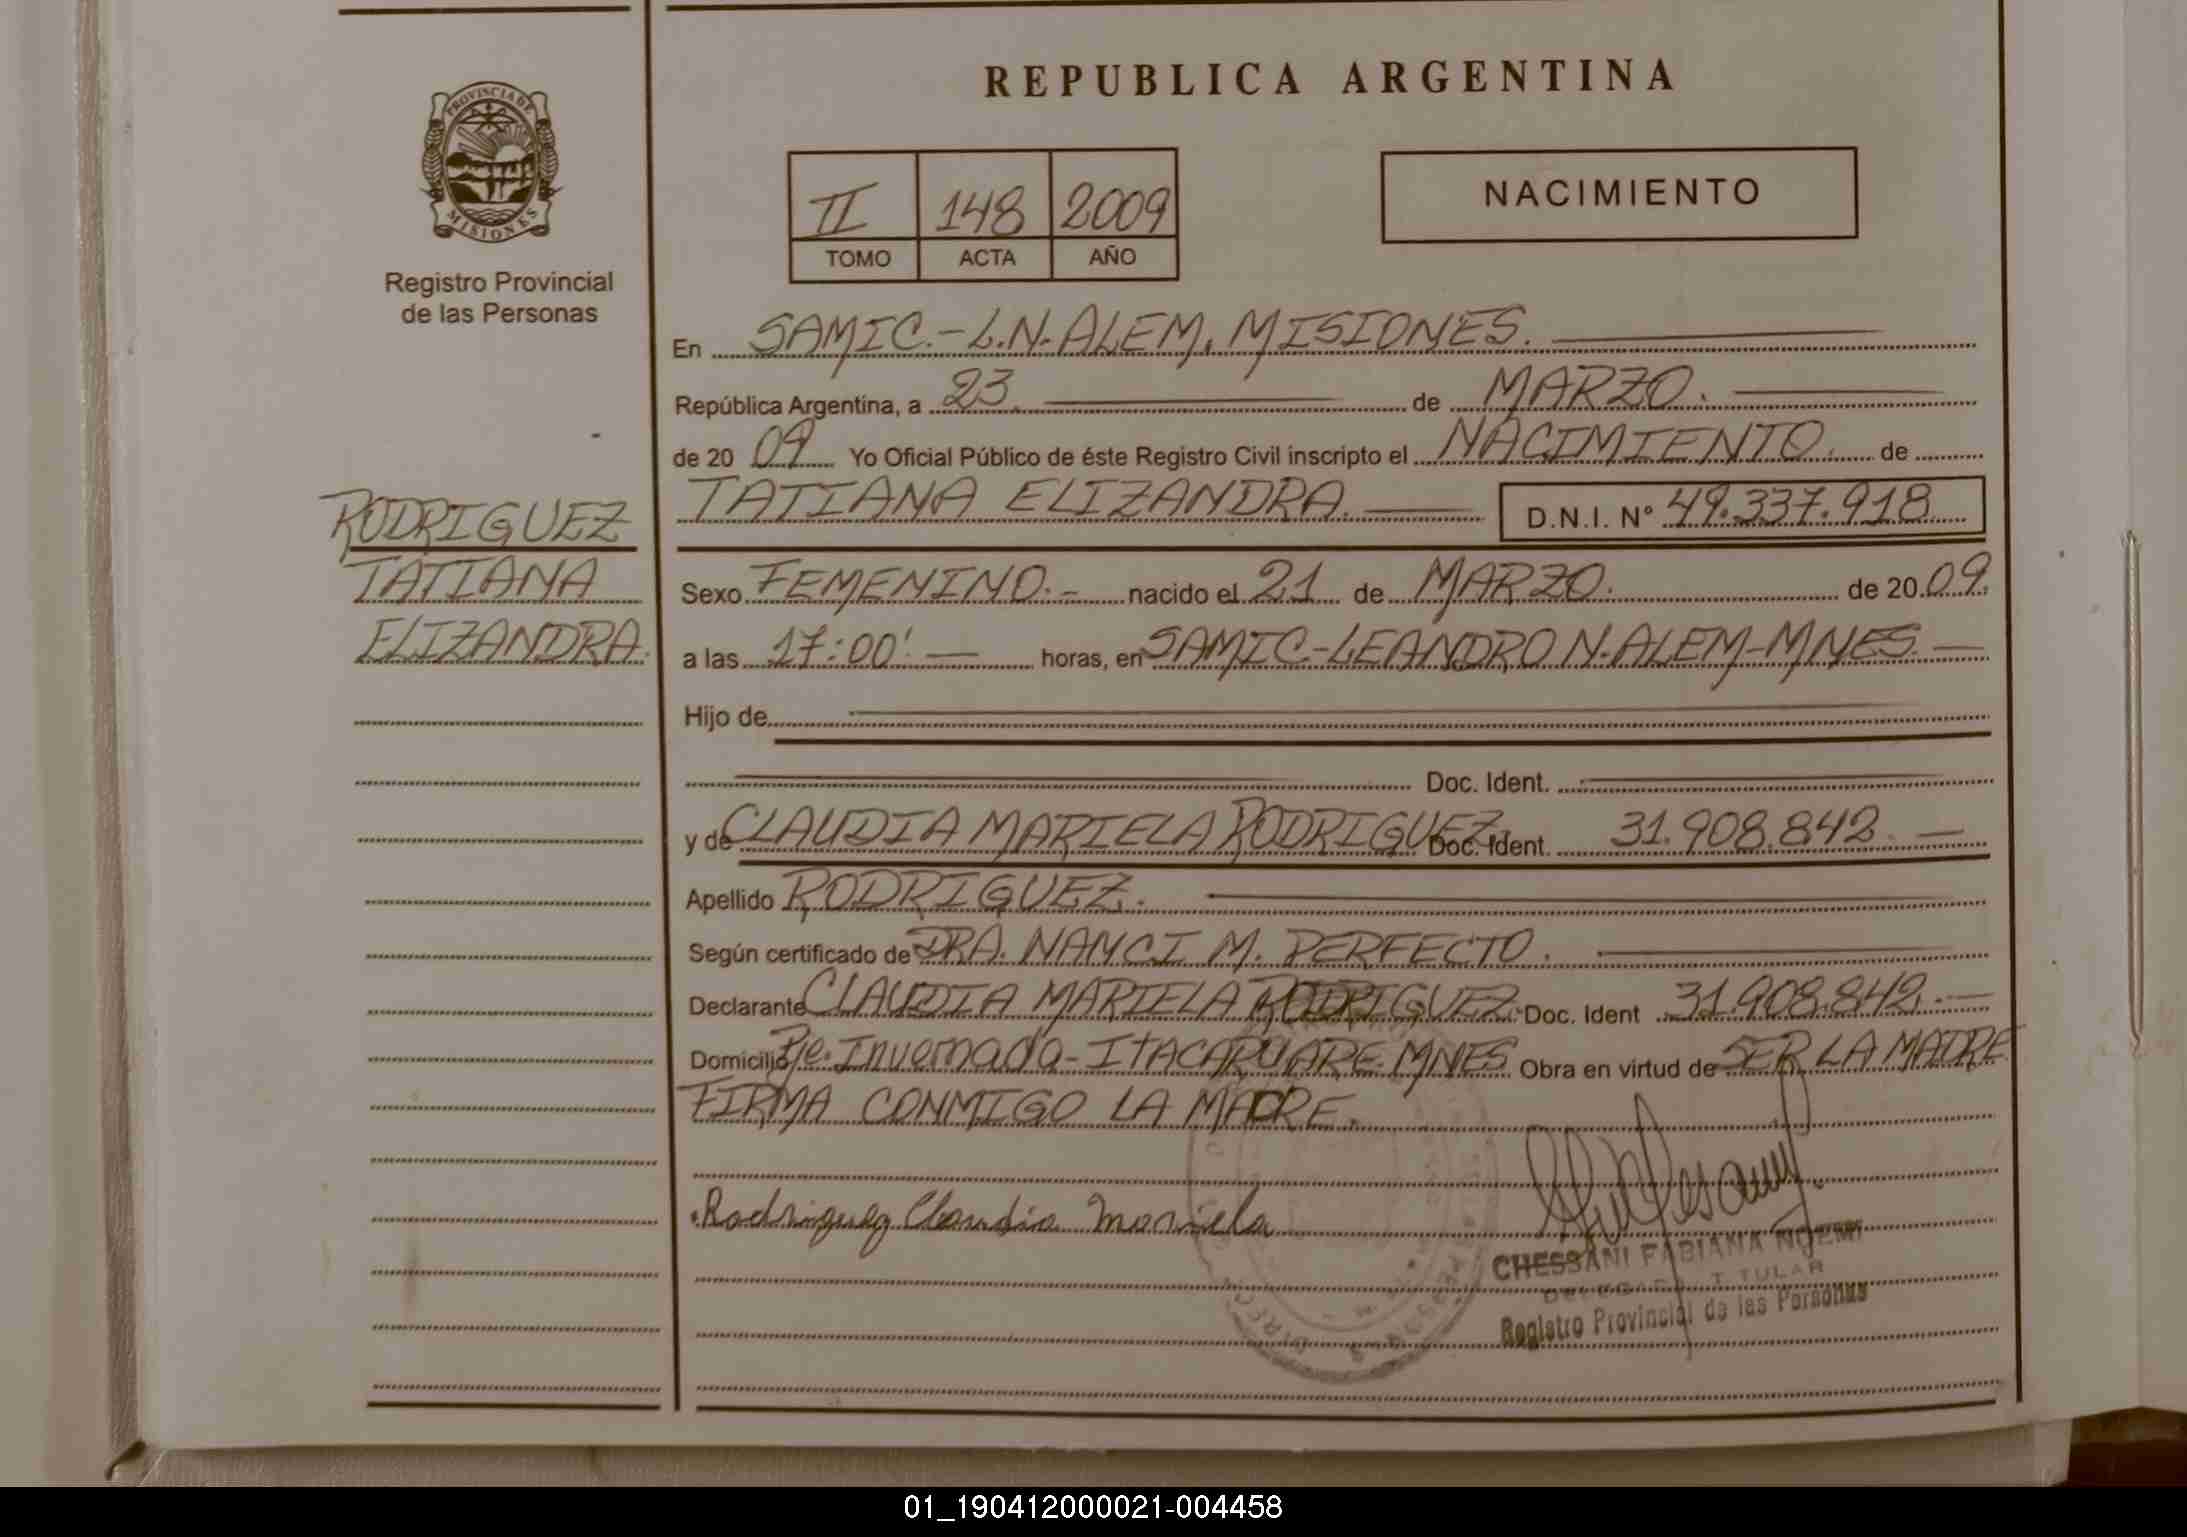 REPUBLICA ARGENTINA
PROVINCIA DE
MISIONES
Registro Provincial
de las Personas
II 148 2009
TOMO ACTA AÑO
NACIMIENTO
En SAMIC.-L.N.ALEM. MISIONES.
República Argentina, a 23. de MARZO.
de 20 09 Yo Oficial Público de éste Registro Civil inscripto el NACIMIENTO. de
TATIANA ELIZANDRA. D.N.I. N° 49.337.918
RODRIGUEZ
TATIANA
ELIZANDRA.
Sexo FEMENINO.- nacido el 21 de MARZO. de 20 09.
a las 17:00' horas, en SAMIC-LEANDRO N.ALEM-MNES.
Hijo de
Doc. Ident.
y de CLAUDIA MARIELA RODRIGUEZ Doc. Ident. 31.908.842.
Apellido RODRIGUEZ.
Según certificado de DRA. NANCI M. PERFECTO.
Declarante CLAUDIA MARIELA RODRIGUEZ. Doc. Ident 31.908.842.
Domicilio Pje. Invernada-ITACARUARE.MNES Obra en virtud de SER LA MADRE
FIRMA CONMIGO LA MADRE.
Rodriguez Claudia Mariela
CHESSANI FABIANA NOEMI
DELEGADA TITULAR
Registro Provincial de las Personas
01_190412000021-004458